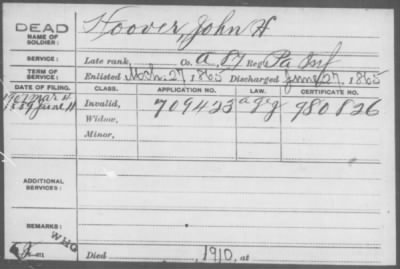 DEAD
NAME OF SOLDIER: Hoover, John H
SERVICE: Late rank, Co. A, 87 Reg't Pa Inf
TERM OF SERVICE: Enlisted Mch. 27, 1865 Discharged June 27, 1865
DATE OF FILING. CLASS. APPLICATION NO. LAW. CERTIFICATE NO.
1907 Mar 4
1889 June 11 Invalid, 709423 980826
Widow,
Minor,
ADDITIONAL SERVICES:
REMARKS:
WHG
Died , 1910, at